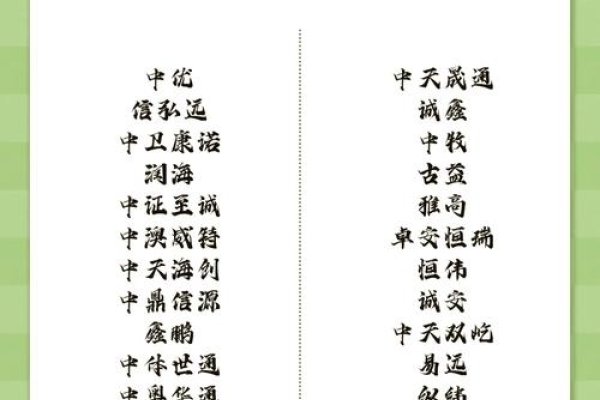 中优
信弘远
中卫康诺
润海
中证至诚
中澳威特
中天海创
中鼎信源
鑫鹏
中体世通
中奥华通
中天晟通
诚鑫
中牧
古益
雅高
卓安恒瑞
恒伟
诚安
中天双屹
易远